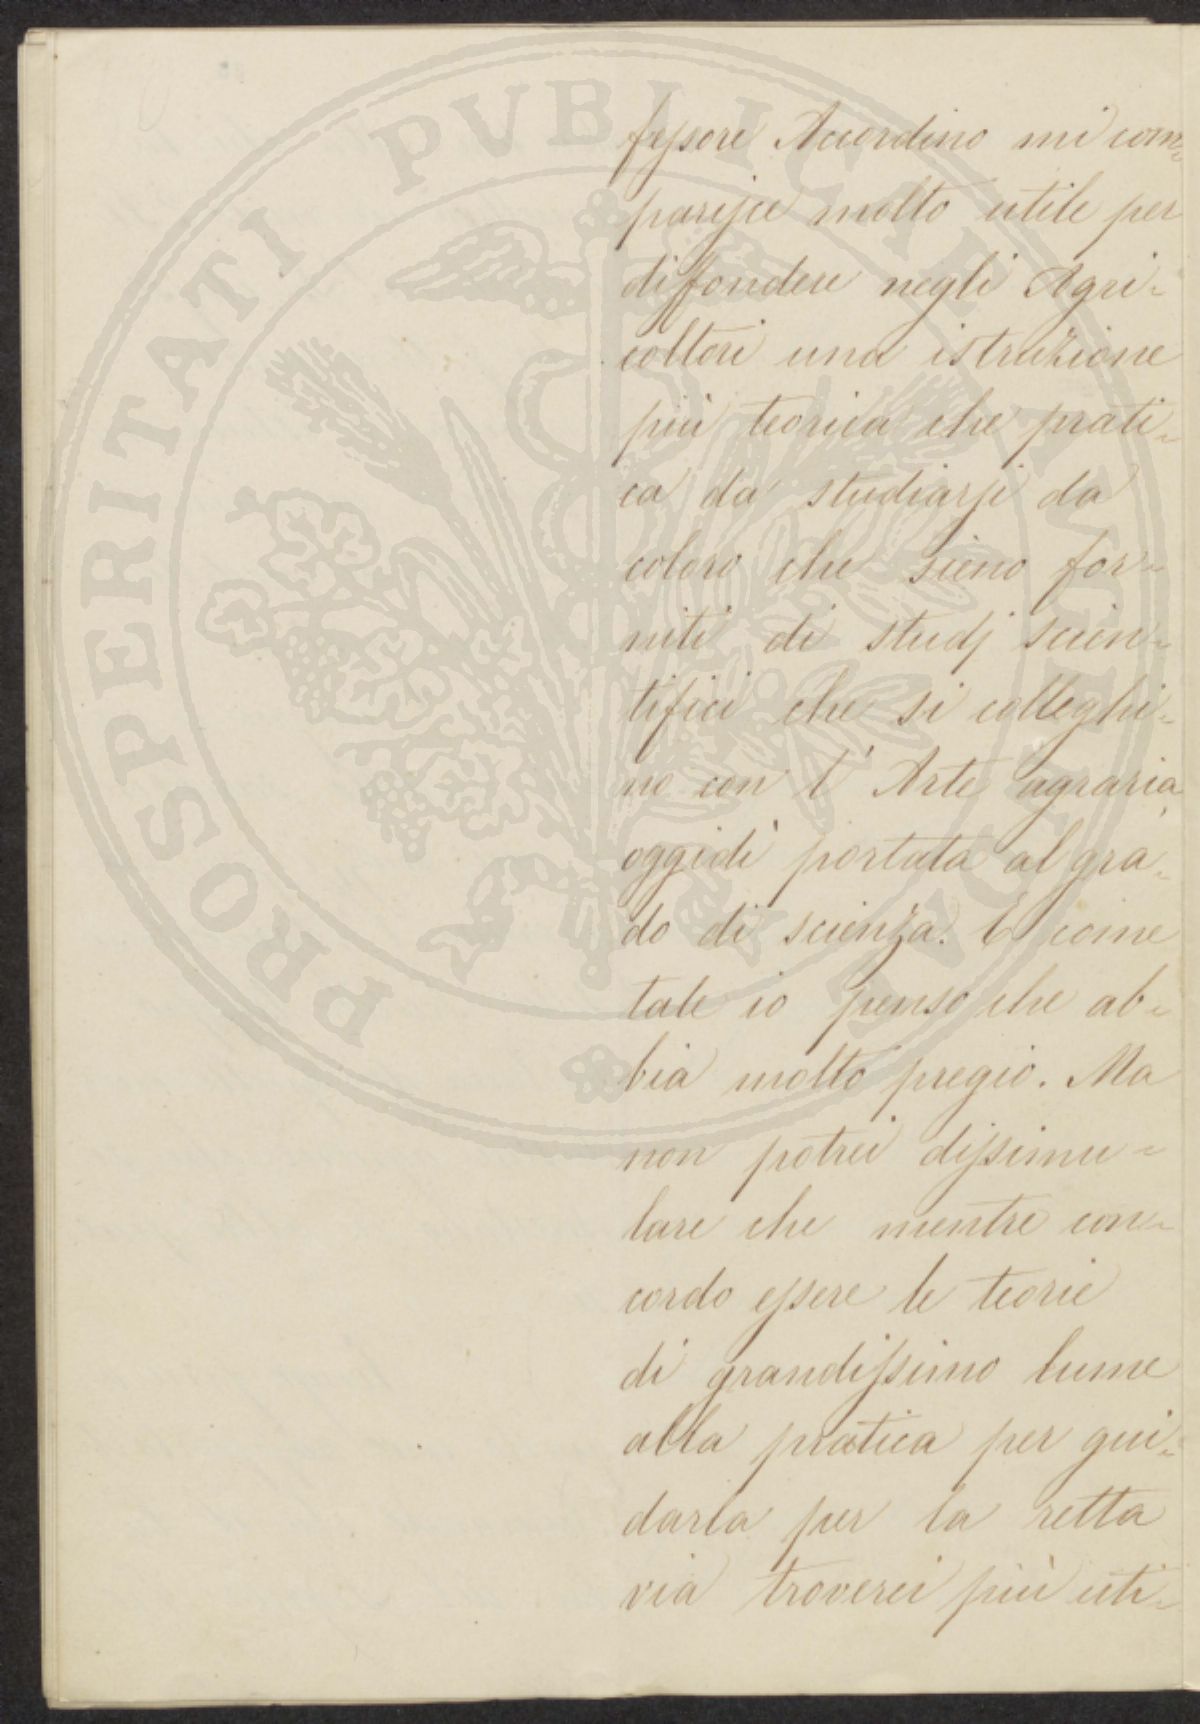 fessore Accordino mi com=
parisce molto utile per
diffondere negli Agri=
coltori una istruzione
più teorica che prati=
ca da studiarsi da
coloro che sieno for=
niti di studj scien=
tifici che si colleghi=
no con l' Arte agraria,
oggidì portata al gra=
do di scienza. E come
tale io penso che ab=
bia molto pregio. Ma
non potrei dissimu=
lare che mentre con=
cordo essere le teorie
di grandissimo lume
alla pratica per gui=
darla per la retta
via troverei più uti=
PROSPERITATI PVBLICAE AVGENDAE